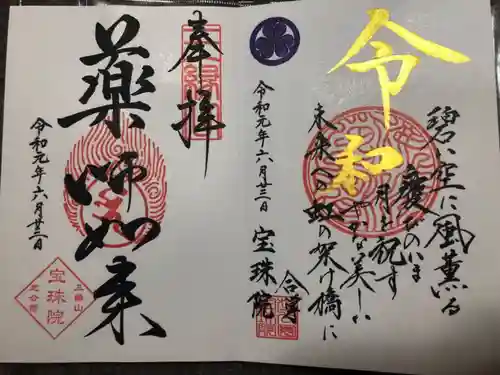 碧い空に風薫る
慶びのいま
月を祝す
美しい
未来への虹の架け橋に
合掌
令和
令和元年六月廿三日
宝珠院
奉拝
薬師如来
令和元年六月廿三日
三縁山
宝珠院
芝公園